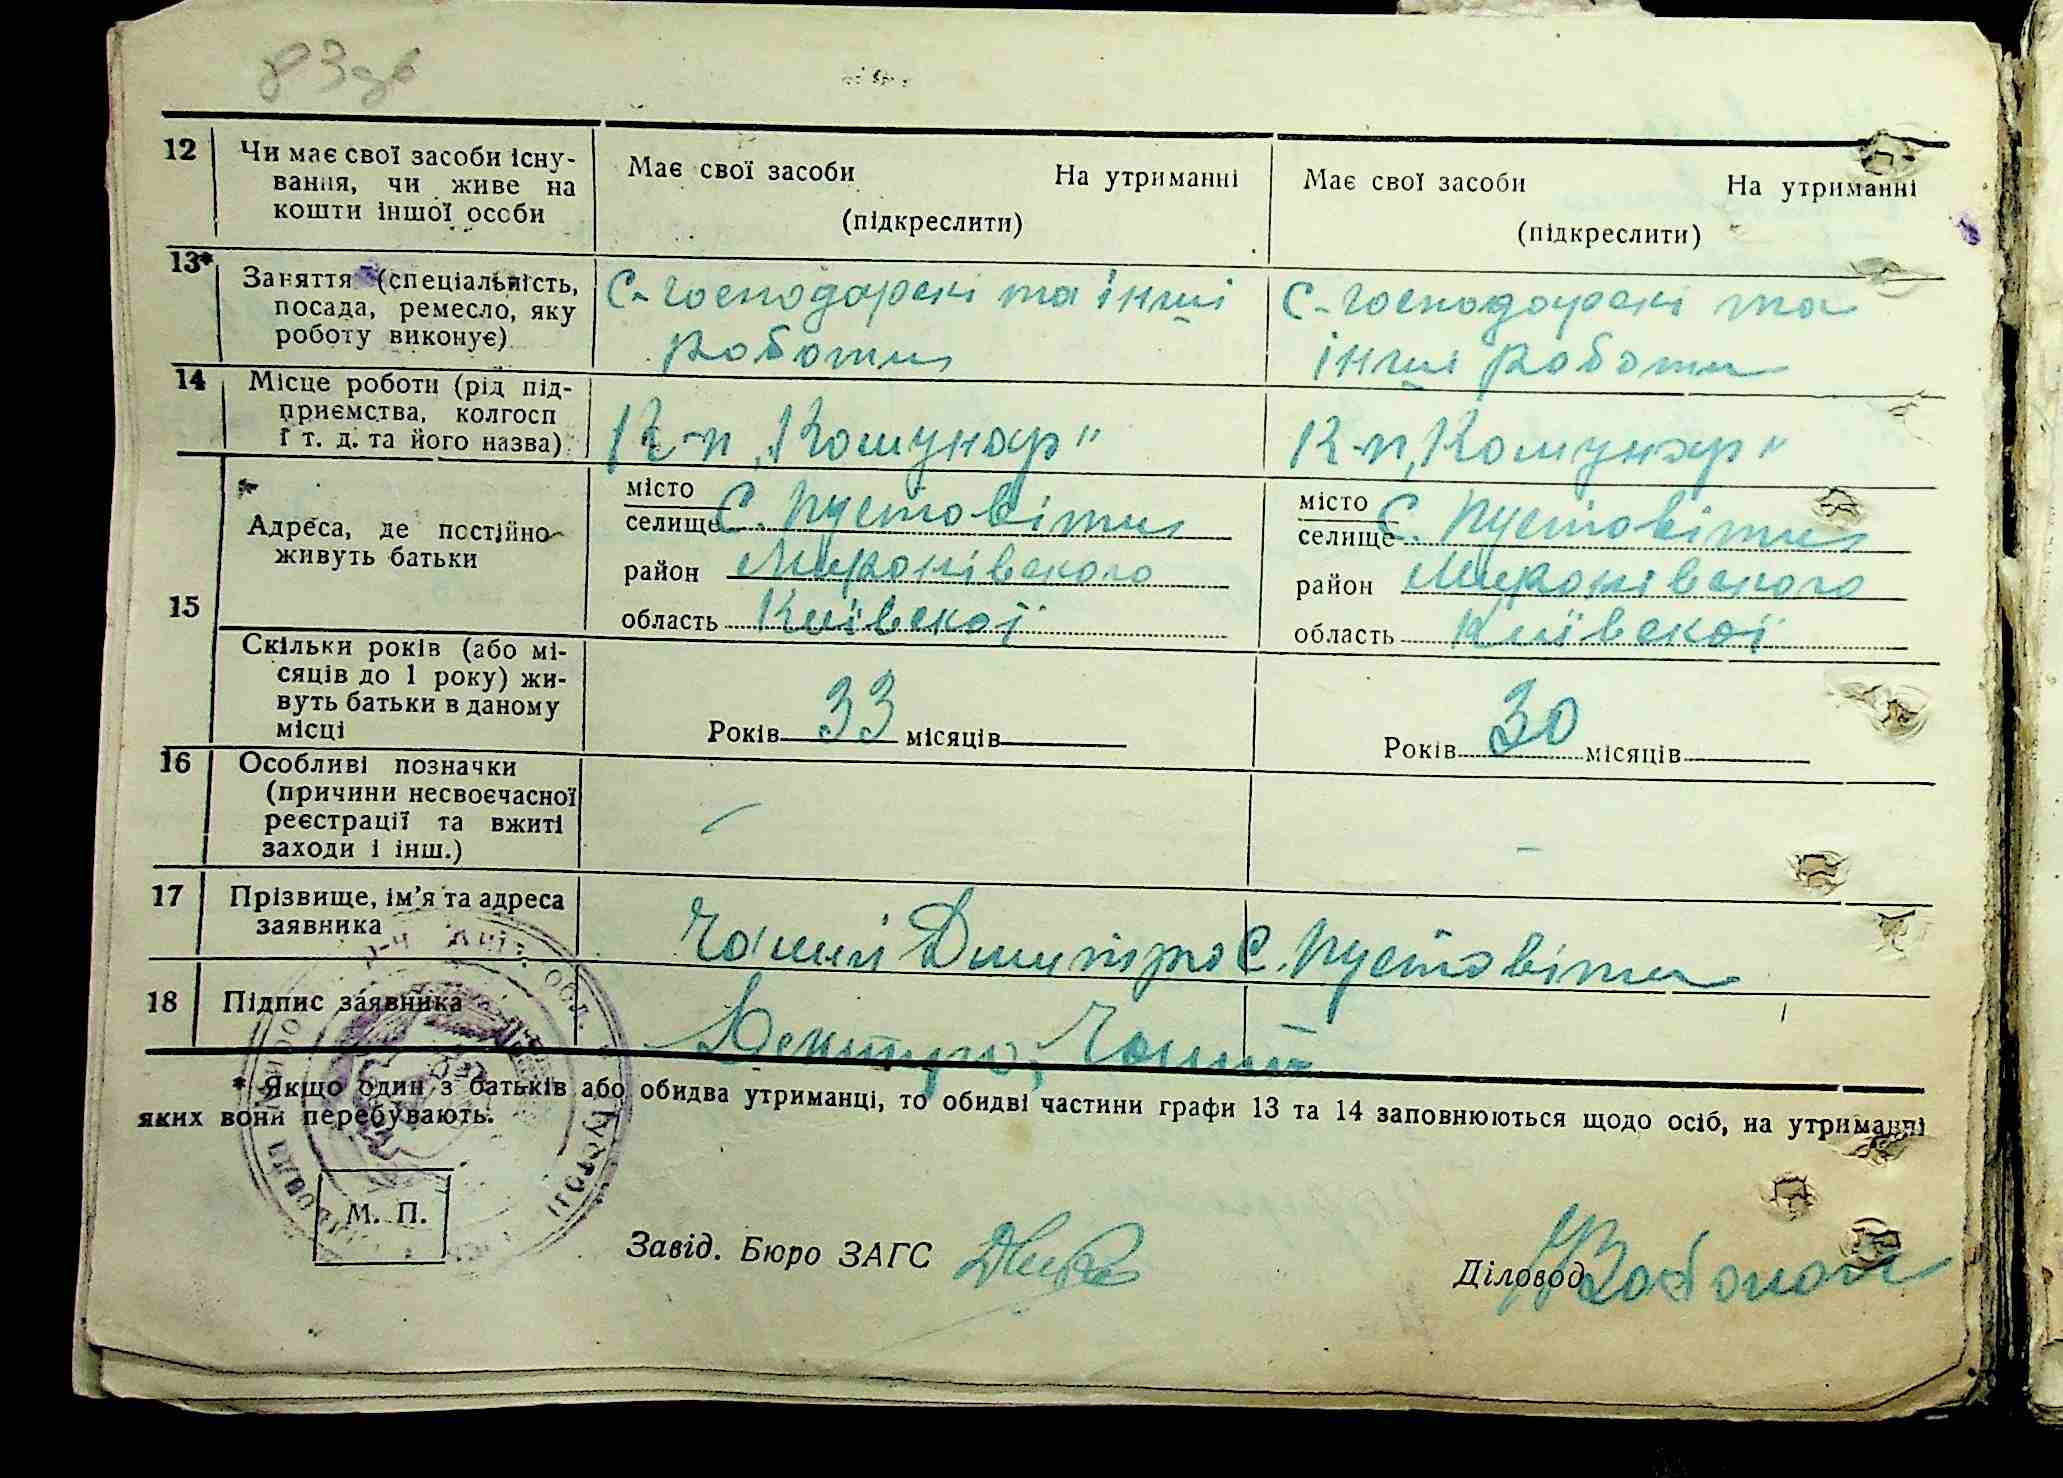 83 зв
12 Чи має свої засоби існу-
вання, чи живе на
кошти іншої особи
Має свої засоби На утриманні
(підкреслити)
Має свої засоби На утриманні
(підкреслити)
13* Заняття (спеціальність,
посада, ремесло, яку
роботу виконує)
С-господарскі та інші
роботи
С-господарскі та
інші роботи
14 Місце роботи (рід під-
приємства, колгосп
і т. д. та його назва)
К-п „Комунар"
К-п „Комунар"
15 Адреса, де постійно
живуть батьки
місто
селище С. Пустовіти
район Миронівского
область Київскої
місто
селище С. Пустовіти
район Миронівского
область Київскої
Скільки років (або мі-
сяців до 1 року) жи-
вуть батьки в даному
місці
Років 33 місяців
Років 30 місяців
16 Особливі позначки
(причини несвоєчасної
реєстрації та вжиті
заходи і інш.)
–
–
17 Прізвище, ім'я та адреса
заявника
Дмитро С. Пустовіти
18 Підпис заявника
* Якщо один з батьків або обидва утриманці, то обидві частини графи 13 та 14 заповнюються щодо осіб, на утриманні
яких вони перебувають.
М. П.
Завід. Бюро ЗАГС
Діловод